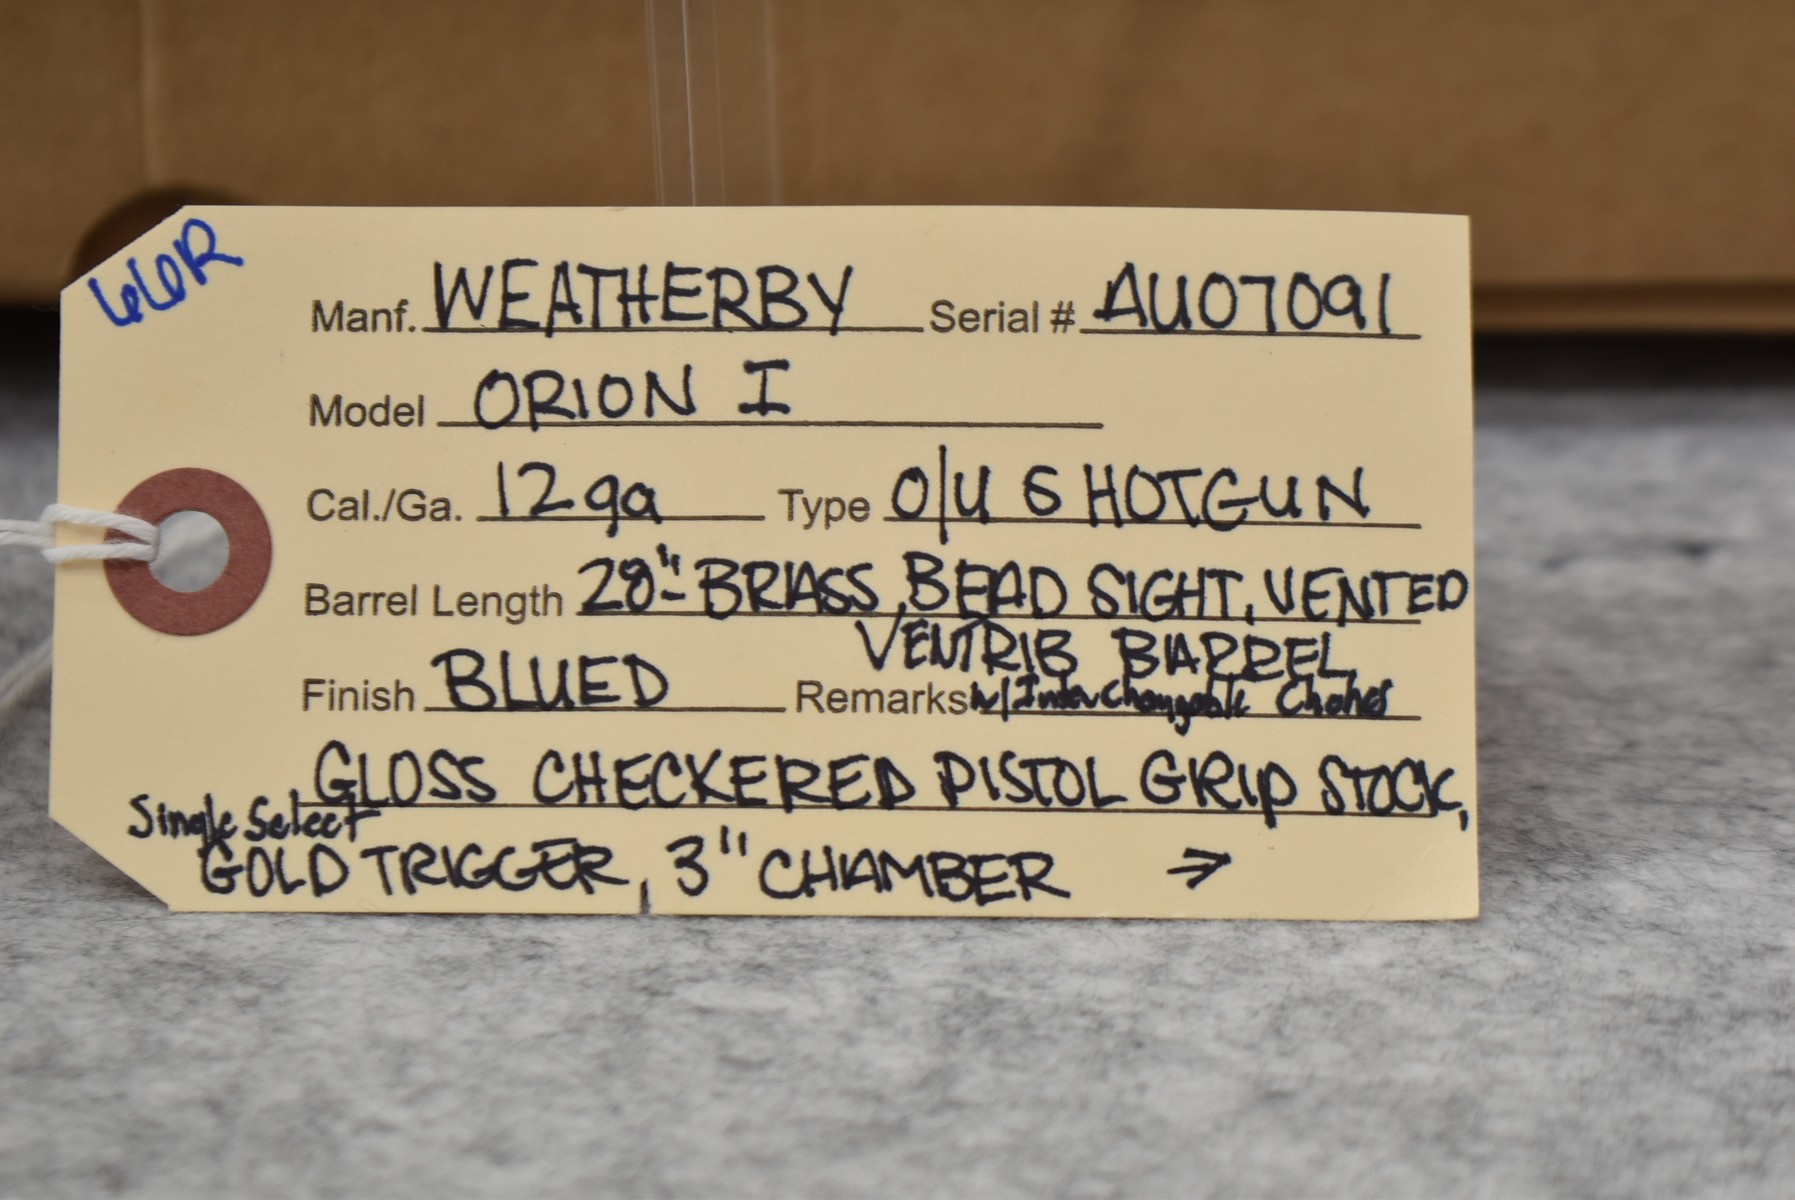 66R
Manf. WEATHERBY Serial # AU07091
Model ORION I
Cal./Ga. 12ga Type O/U SHOTGUN
Barrel Length 28" - BRASS BEAD SIGHT, VENTED
VENTRIB BARREL
Finish BLUED Remarks w/Interchangable Chokes
GLOSS CHECKERED PISTOL GRIP STOCK,
Single Select
GOLD TRIGGER, 3" CHAMBER →